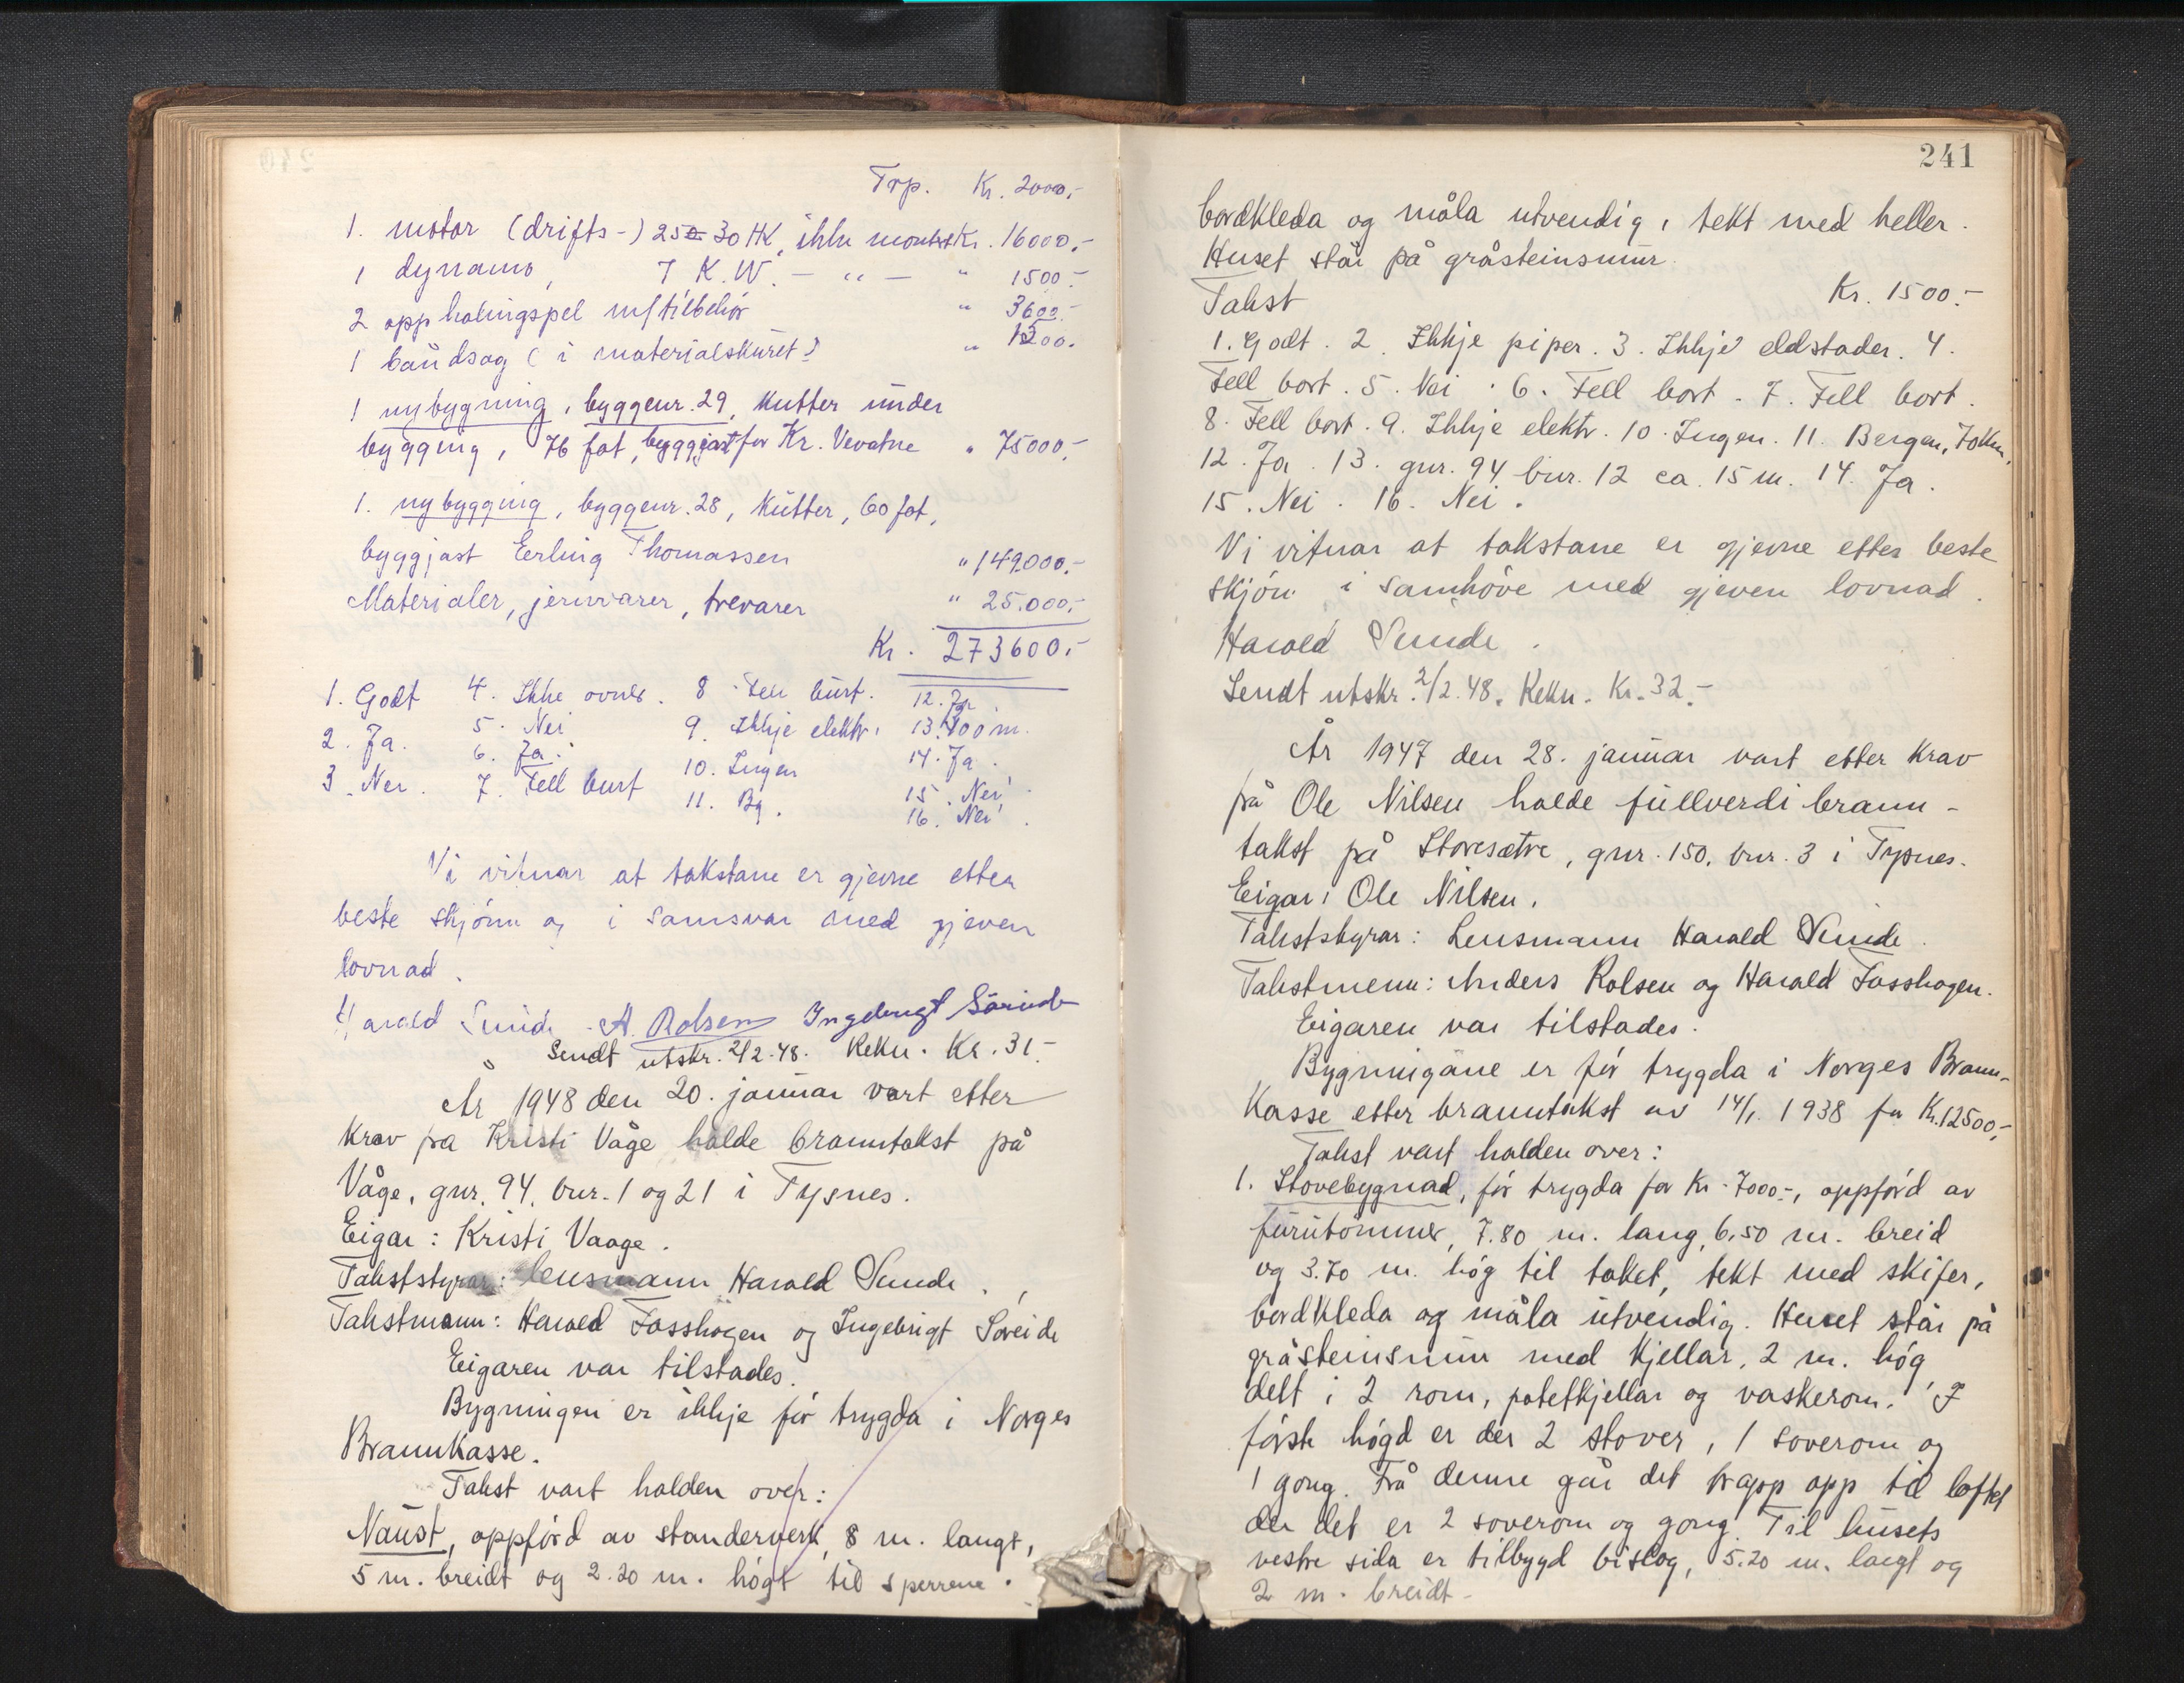 Trp. Kr. 2000.-
1. motor (drifts-) 25 a 30 HK, ikke montert Kr. 16000.-
1 dynamo, 7 K.W. - " - " 1500.-
2 opphalingspel m/tilbehör " 3600.-
1 bandsag (i materialskuret) " 1500.
1 nybygning, byggenr. 29, Kutter under
bygging, 76 fot, byggjast for Kr. Vevatne " 75000.-
1. nybygging, byggenr. 28, Kutter, 60 fot,
byggjast Erling Thomassen " 149.000.-
Materialer, jernvarer, trevarer " 25.000.-
Kr. 273600.-
1. Godt 4. Ikke ovner. 8. Fell burt. 12. Ja
2. Ja. 5. Nei 9. Ikkje elektr. 13. 100 m.
3. Nei. 6. Ja. 10. Ingen 14. Ja.
7. Fell burt 11. Bg. 15. Nei.
16. Nei.
Vi vitnar at takstane er gjevne etter
beste skjönn og i samsvar med gjeven
lovnad.
Harald Sunde. A. Rolsen Ingebrigt Söreide
Sendt utskr. 2/2-48. Rekn. Kr. 31.-
År 1948 den 20. januar vart etter
krav fra Kristi Våge halde branntakst på
Våge, gnr. 94, bnr. 1 og 21 i Tysnes.
Eigar: Kristi Vaage.
Takststyrar: lensmann Harald Sunde.
Takstmenn: Harald Fosshagen og Ingebrigt Söreide
Eigaren var tilstades.
Bygningen er ikkje för trygda i Norges
Brannkasse.
Takst vart halden over:
Naust, oppförd av standerverk, 8 m. langt,
5 m. breidt og 2.20 m. högt til sperrene.
241
bordkleda og måla utvendig, tekt med heller.
Huset står på gråsteinsmur.
Takst Kr. 1500.-
1. Godt. 2. Ikkje piper. 3. Ikkje eldstader. 4.
Fell bort. 5. Nei. 6. Fell bort. 7. Fell bort.
8. Fell bort. 9. Ikkje elektr. 10. Ingen. 11. Bergen, 70 km.
12. Ja. 13. gnr. 94 bnr. 12 ca. 15 m. 14. Ja.
15. Nei. 16. Nei.
Vi vitnar at takstane er gjevne etter beste
skjön i samhöve med gjeven lovnad.
Harald Sunde.
Sendt utskr. 2/2.48. Rekn. Kr. 32.-
År 1947 den 28. januar vart etter krav
frå Ole Nilsen halde fullverdi brann-
takst på Storesætre, gnr. 150, bnr. 3 i Tysnes.
Eigar: Ole Nilsen.
Takststyrar: Lensmann Harald Sunde.
Takstmenn: Anders Rolsen og Harald Fosshagen.
Eigaren var tilstades.
Bygningane er för trygda i Norges Brann-
Kasse etter branntakst av 14/1. 1938 for Kr. 12500,-
Takst vart halden over:
1. Stovebygnad, för trygda for Kr. 7000.-, oppförd av
furutömmer, 7.80 m. lang, 6.50 m. breid
og 3.70 m. hög til taket, tekt med skifer,
bordkleda og måla utvendig. Huset står på
gråsteinsmur med kjellar, 2 m. hög,
delt i 2 rom, potetkjellar og vaskerom. I
förste högd er der 2 stover, 1 soverom og
1 gong. Frå denne går det trapp opp til loftet
der det er 2 soverom og gong. Til husets
vestre sida er tilbygd bislag, 5.20 m. langt og
2 m. breidt.